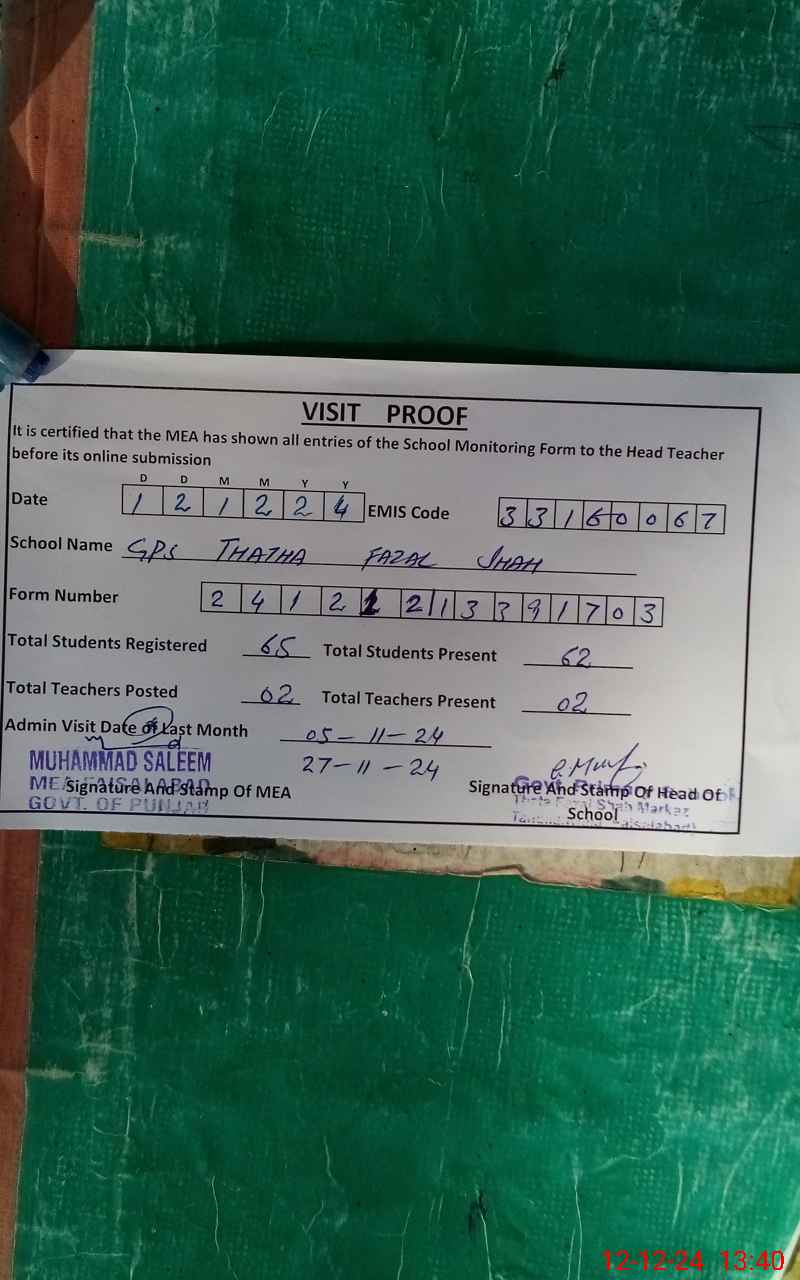 VISIT PROOF
It is certified that the MEA has shown all entries of the School Monitoring Form to the Head Teacher
before its online submission
D D M M Y Y
Date 1 2 1 2 2 4 EMIS Code 3 3 1 6 0 0 6 7
School Name GPS THATHA FAZAL SHAH
Form Number 2 4 1 2 1 2 1 3 3 9 1 7 0 3
Total Students Registered 65 Total Students Present 62
Total Teachers Posted 02 Total Teachers Present 02
Admin Visit Date of Last Month 05-11-24
27-11-24
MUHAMMAD SALEEM
MEA FAISALABAD
GOVT. OF PUNJAB
Signature And Stamp Of MEA
Signature And Stamp Of Head Of
School
Govt. Primary
Shah Markaz
12-12-24 13:40